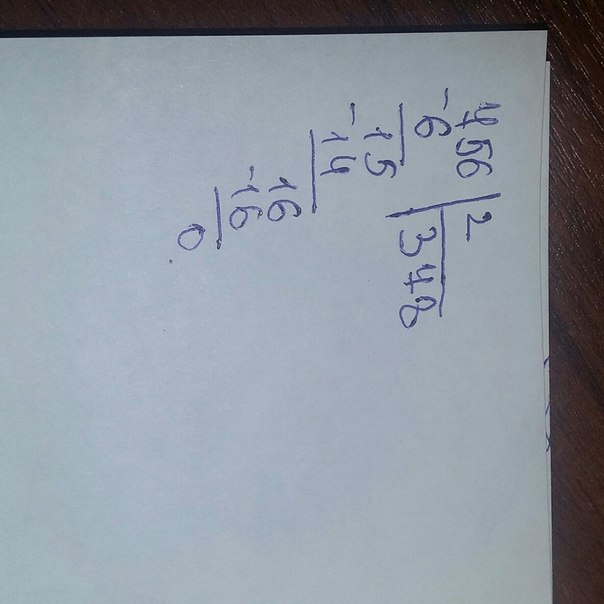 456 | 2
-6 | 348
15
-14
16
-16
0